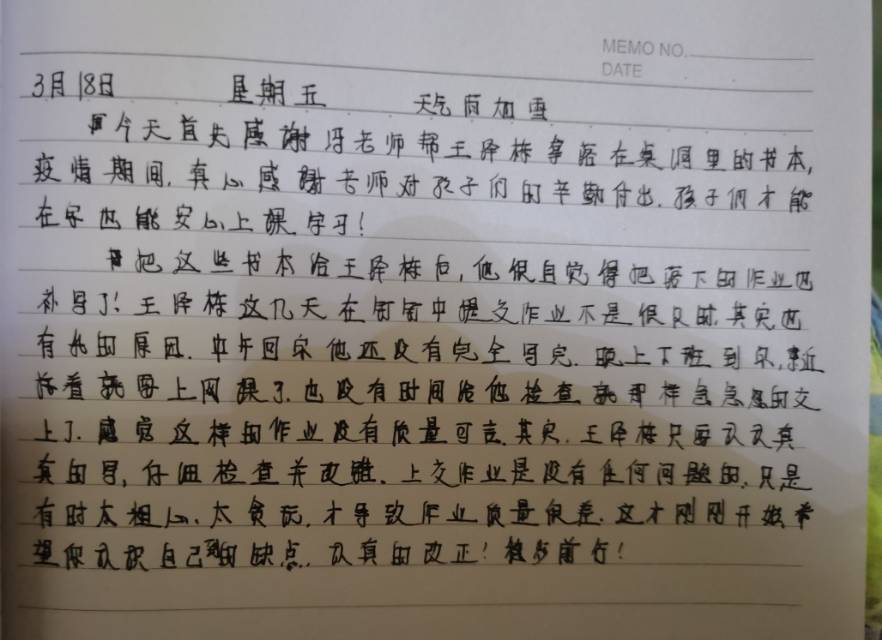 MEMO NO.
DATE
3月18日 星期五 天气雨加雪
今天首先感谢冯老师帮王泽栋拿落在桌洞里的书本,
疫情期间,真心感谢老师对孩子们的辛勤付出,孩子们才能
在家也能安心上课学习!
把这些书本给王泽栋后,他很自觉得把落下的作业也
补写了!王泽栋这几天在钉钉中提交作业不是很及时,其实也
有我的原因.中午回家他还没有完全写完.晚上下班到家,紧
接着就要上网课了.也没有时间给他检查就那样急急忽的交
上了.感觉这样的作业没有质量可言.其实.王泽栋只要认认真
真的写,仔细检查并改错.上交作业是没有任何问题的.只是
有时太粗心.太贪玩.才导致作业质量很差.这才刚刚开始希
望你认识自己到的缺点.认真的改正!稳步前行!